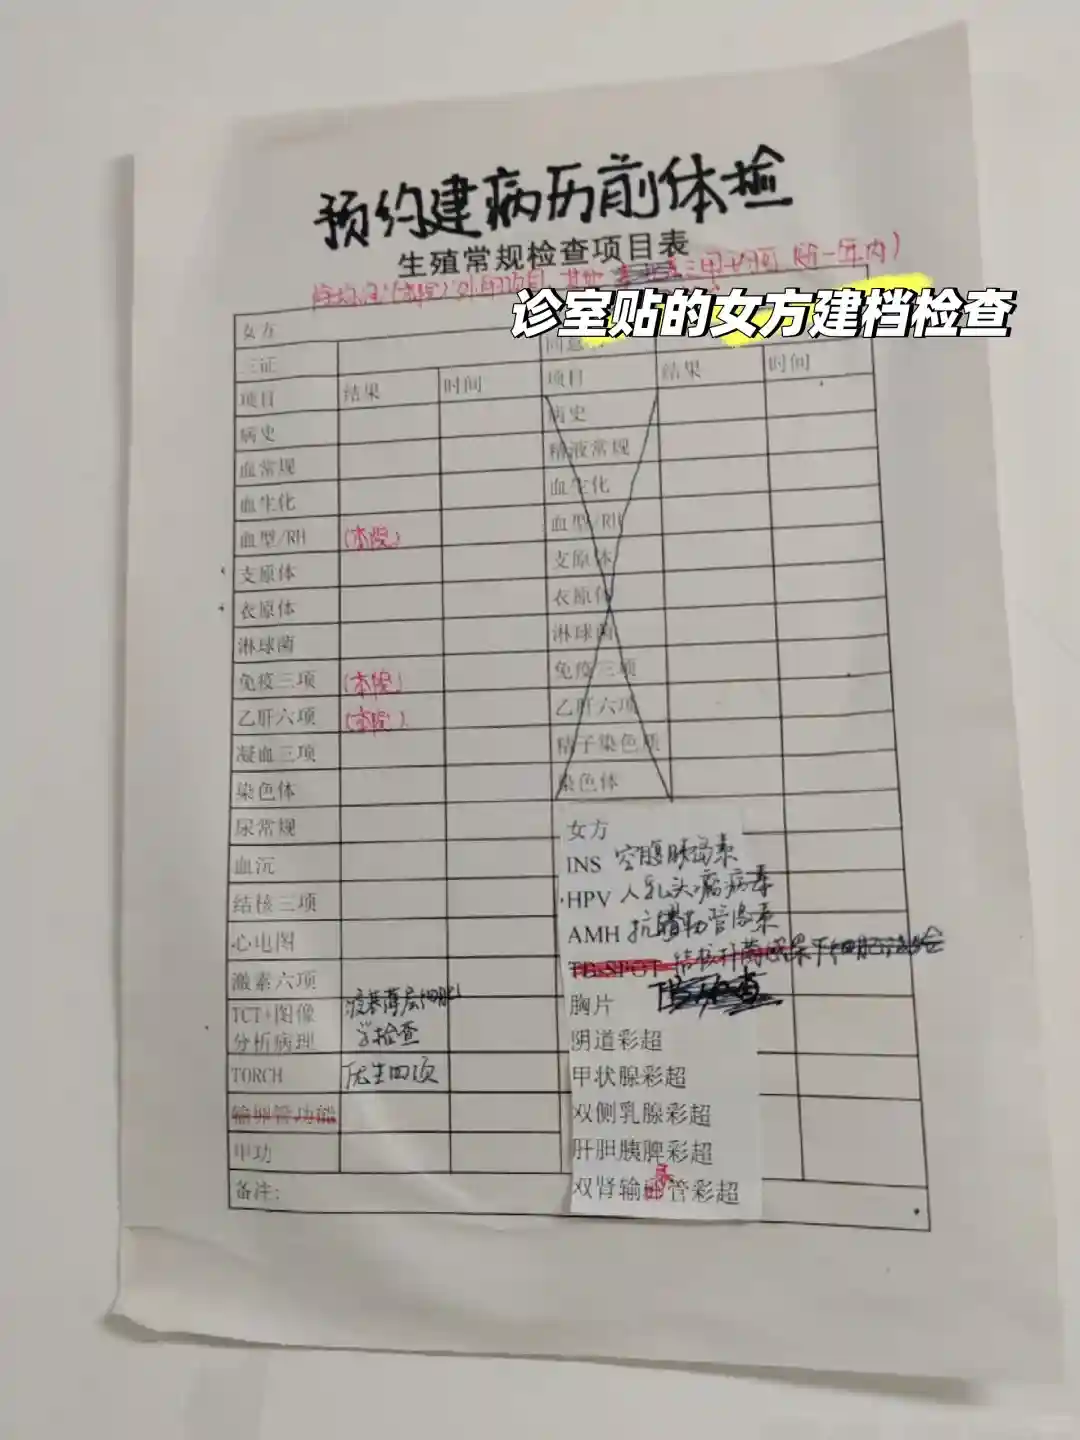 预约建病历前体检
生殖常规检查项目表
三甲均可 贴一年内)
诊室贴的女方建档检查
女方
三证
项目 结果 时间 项目 结果 时间
病史 病史
血常规 精液常规
血生化 血生化
血型/RH (本院) 血型/RH
支原体 支原体
衣原体 衣原体
淋球菌 淋球菌
免疫三项 (本院) 免疫三项
乙肝六项 (本院) 乙肝六项
凝血三项 精子染色质
染色体 染色体
尿常规 女方
血沉 INS 空腹胰岛素
结核三项 HPV 人乳头瘤病毒
心电图 AMH 抗缪勒管激素
激素六项 TB-SPOT 结核杆菌
TCT+图像分析病理 液基薄层细胞学检查 胸片
阴道彩超
TORCH 优生四项 甲状腺彩超
输卵管功能 双侧乳腺彩超
甲功 肝胆胰脾彩超
备注: 双肾输尿管彩超